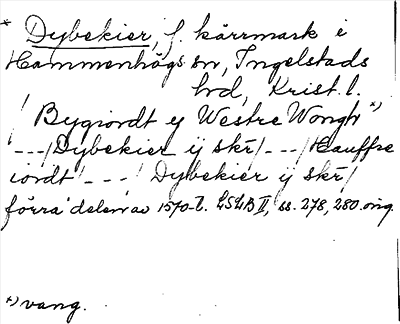 * Dybekier, f. kärrmark i
Hammenhögs sn, Ingelstads
hd, Krist. l.
/Bygiordt ey Westre Wongh *)
/---/ Dybekier ij skr/---/ Hauffre
iordt /---/ Dybekier ij skr/
förra delen av 1570-t. LSLB II, ss. 278, 280. orig.
*) vang.